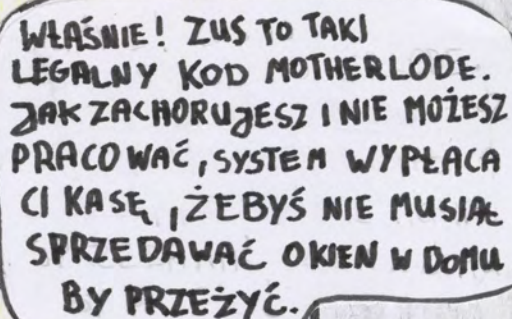 WŁAŚNIE! ZUS TO TAKI
LEGALNY KOD MOTHERLODE.
JAK ZACHORUJESZ I NIE MOŻESZ
PRACOWAĆ, SYSTEM WYPŁACA
CI KASĘ, ŻEBYŚ NIE MUSIAŁ
SPRZEDAWAĆ OKIEN W DOMU
BY PRZEŻYĆ.